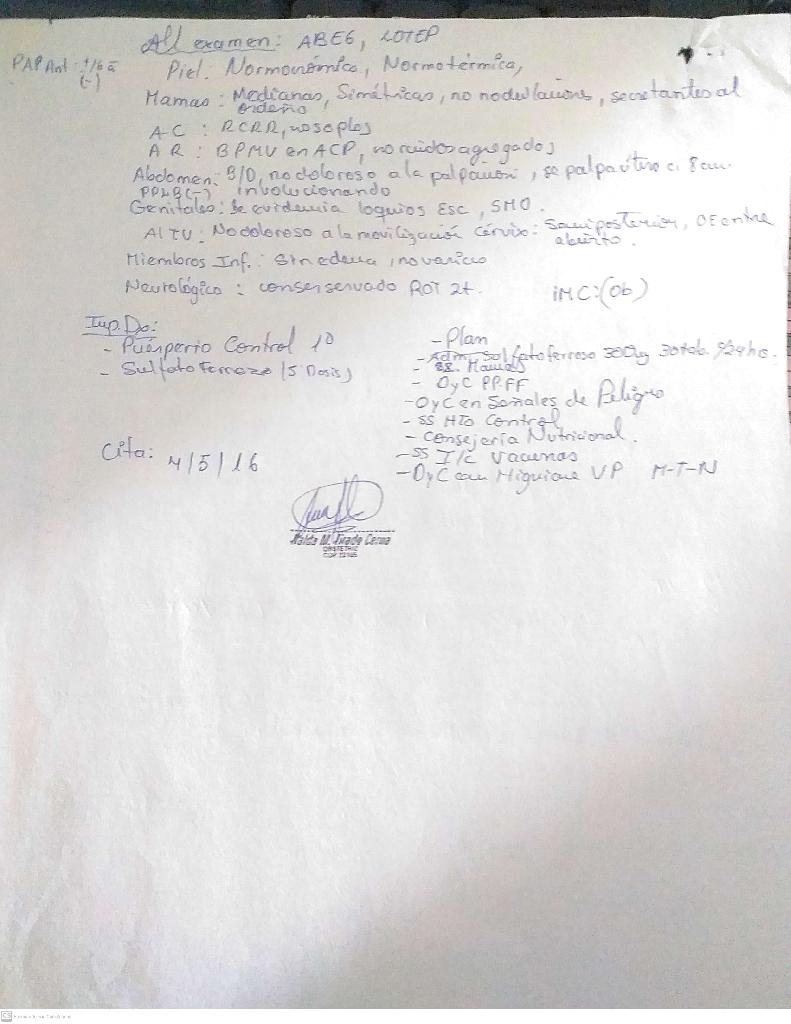 All examen: ABEG, LOTEP
PAP Ant: 1/6 a
(-)
Piel: Normocrómica, Normotérmica,
Mamas: Medianas, Simétricas, no nodulaciones, secretantes al
ordeño
A-C: RCRR, no soplos
AR: BPMV en ACP, no ruidos agregados
Abdomen: B/D, no doloroso a la palpación, se palpa útero a 8 cm.
PPLB(-) involucionando
Genitales: Se evidencia loquios Esc, SMO.
Al TV: No doloroso a la movilización cérvix: Semiposterior, OE entre
abierto.
Miembros Inf.: Sin edema, no varices
Neurológico: conserservado ROT 2+. iMC:(Ob)
Imp. Dx:
- Puérperio Control 1º
- Sulfato Ferroso (5 Dosis)
- Plan
- Adm. Sulfato ferroso 300mg 30 tab. /24 hs.
- OyC PP.FF
- OyC en Señales de Peligro
- SS HTO Control
- Consejería Nutricional.
- SS I/C Vacunas
- OyC en Higiene VP M-T-N
Cita: 4/5/16
OBSTETRIZ